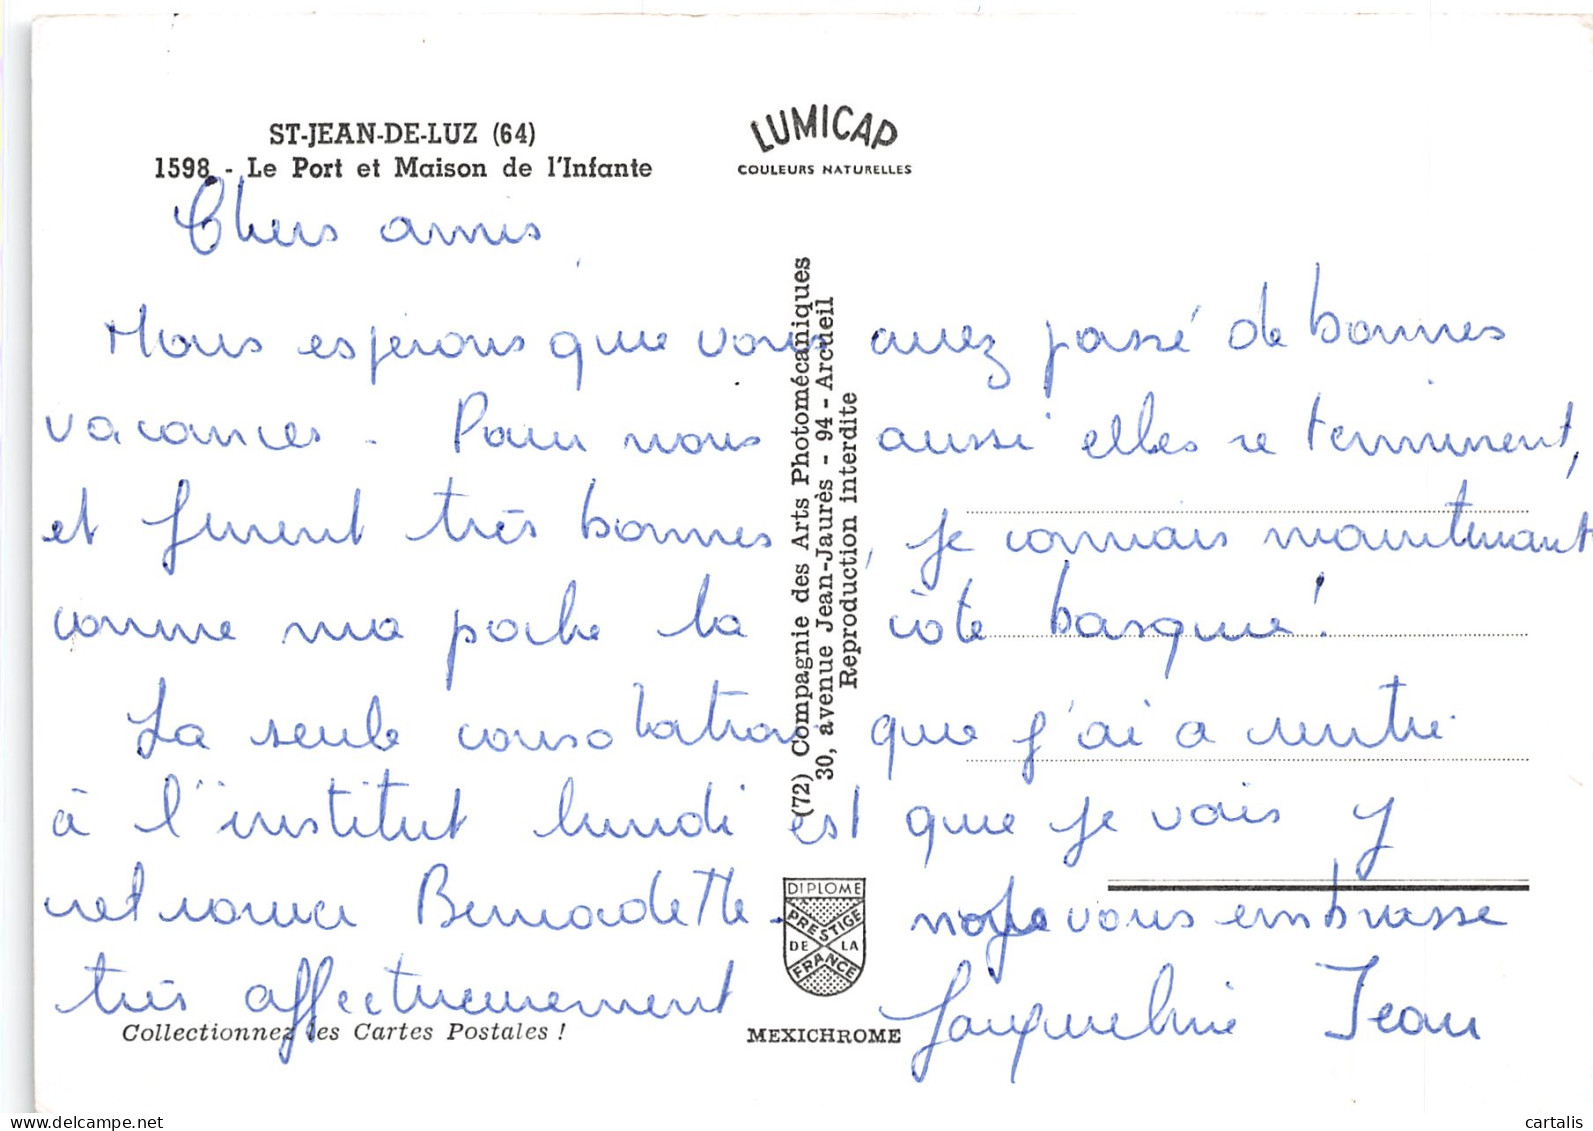 ST-JEAN-DE-LUZ (64)
1598 - Le Port et Maison de l'Infante
LUMICAP
COULEURS NATURELLES
Chers amis
Nous esperons que vous avez passé de bonnes
vacances - Pour nous aussi elles se terminent,
et furent très bonnes, je connais maintenant
comme ma poche la côte basque!
La seule consolation que j'ai a rentre
à l'institut lundi est que je vais y
retrouver Bernadette - vous embrasse
très affectueusement Jacqueline Jean
(72) Compagnie des Arts Photomécaniques
30, avenue Jean-Jaurès - 94 - Arcueil
Reproduction interdite
DIPLOME
PRESTIGE
DE LA
FRANCE
Collectionnez les Cartes Postales !
MEXICHROME
cartalis
www.delcampe.net